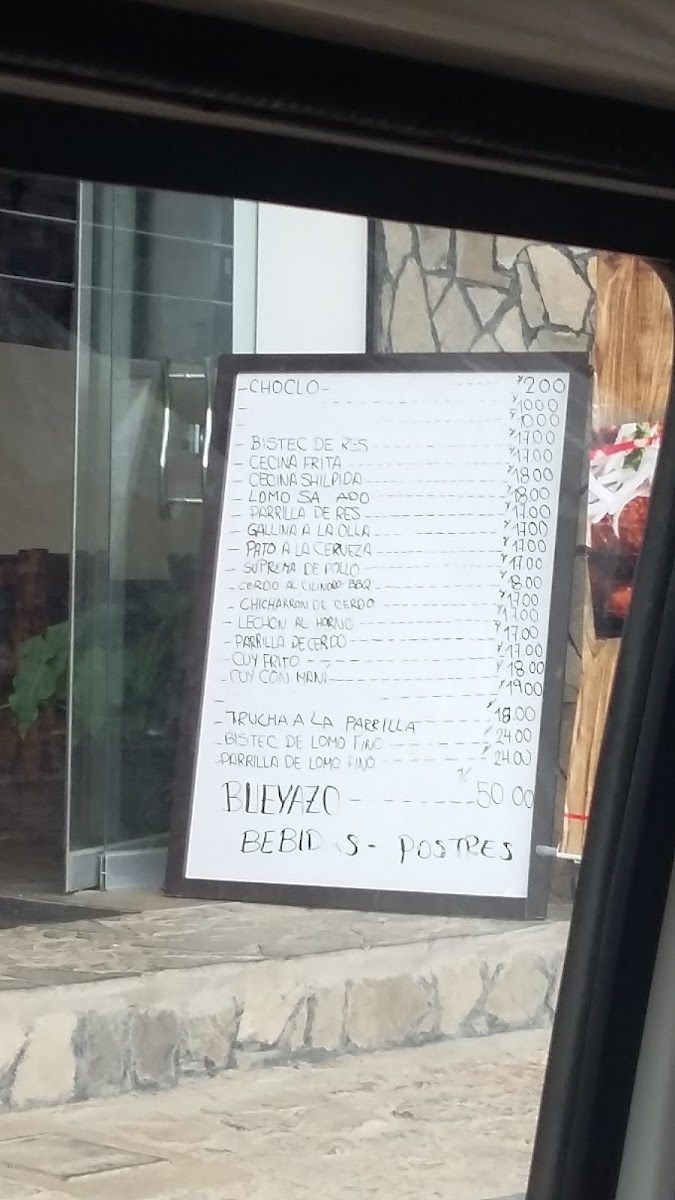 -CHOCLO- 200
- 1000
- 1000
- BISTEC DE RES 1700
- CECINA FRITA 1700
- CECINA SHILPIDA 1800
- LOMO SA ADO 1800
- PARRILLA DE RES 17.00
- GALLINA A LA OLLA 1700
- PATO A LA CERVEZA 17.00
- SUPREMA DE POLLO 17.00
- CERDO AL CILINDRO BBQ 1800
- CHICHARRON DE CERDO 1700
- LECHON AL HORNO 1700
- PARRILLA DE CERDO 17.00
- CUY FRITO 17.00
- CUY CON MANÍ 18.00
- 1900
- TRUCHA A LA PARRILLA 18.00
- BISTEC DE LOMO FINO 24.00
- PARRILLA DE LOMO FINO 24.00
BLEYAZO 50 00
BEBID S - POSTRES